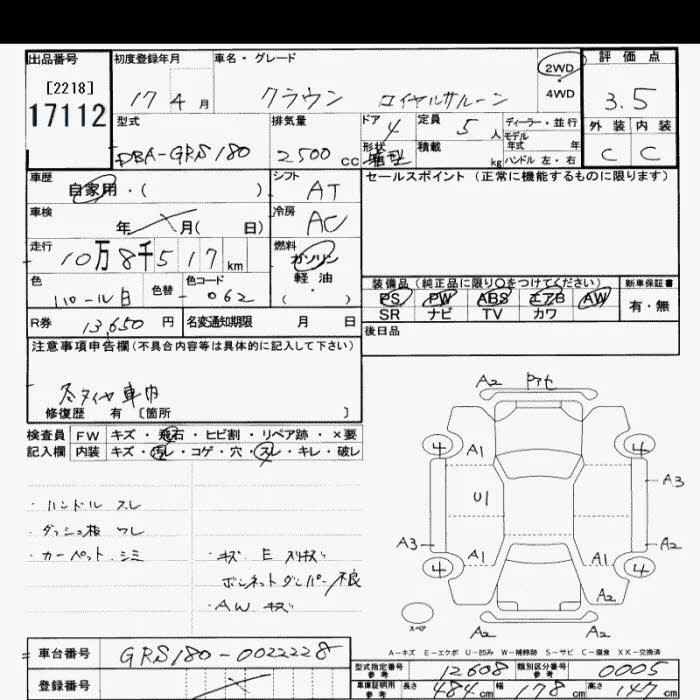 出品番号 初度登録年月 車名・グレード 2WD 評価点
[2218] 4WD
17112 17 4月 クラウン ロイヤルサルーン 3.5
型式 排気量 ドア 定員 ディーラー・並行 外装 内装
DBA-GRS180 2500 cc 4 5人 モデル年式 年 C C
形状 箱型 積載 kg ハンドル 左・右
車歴 自家用・( ) シフト AT セールスポイント(正常に機能するものに限ります)
車検 年 月( 日) 冷房 AC
走行 10万8千517km 燃料 ガソリン
軽油
( )
色 パール白 色替 - 色コード 062
装備品(純正品に限り○をつけてください) 新車保証書
PS PW ABS エアB AW 有・無
SR ナビ TV カワ
R券 13,650円 名変通知期限 月 日 後日品
注意事項申告欄(不具合内容等は具体的に記入して下さい)
冬タイヤ車内
修復歴 有 〔箇所 〕
検査員 FW キズ・飛石・ヒビ割・リペア跡・×要
記入欄 内装 キズ・汚レ・コゲ・穴・スレ・キレ・破レ
・ハンドル スレ
・ダッシュ板 ワレ
・カーペット シミ
・キズ E スリキズ
ボンネットダンパー不良
・AW キズ
A2
4 A1 4
U1 A3
A3 A2
4 A1 A1 4
A2
スペア A2 A2
A-キズ E-エクボ U-凹み W-補修跡 S-サビ C-腐食 XX-交換済
車台番号 GRS180-0022228
型式指定番号 参考 12608 類別区分番号 参考 0005
登録番号
車庫証明用 参考 長さ 484cm 幅 178cm 高さ cm